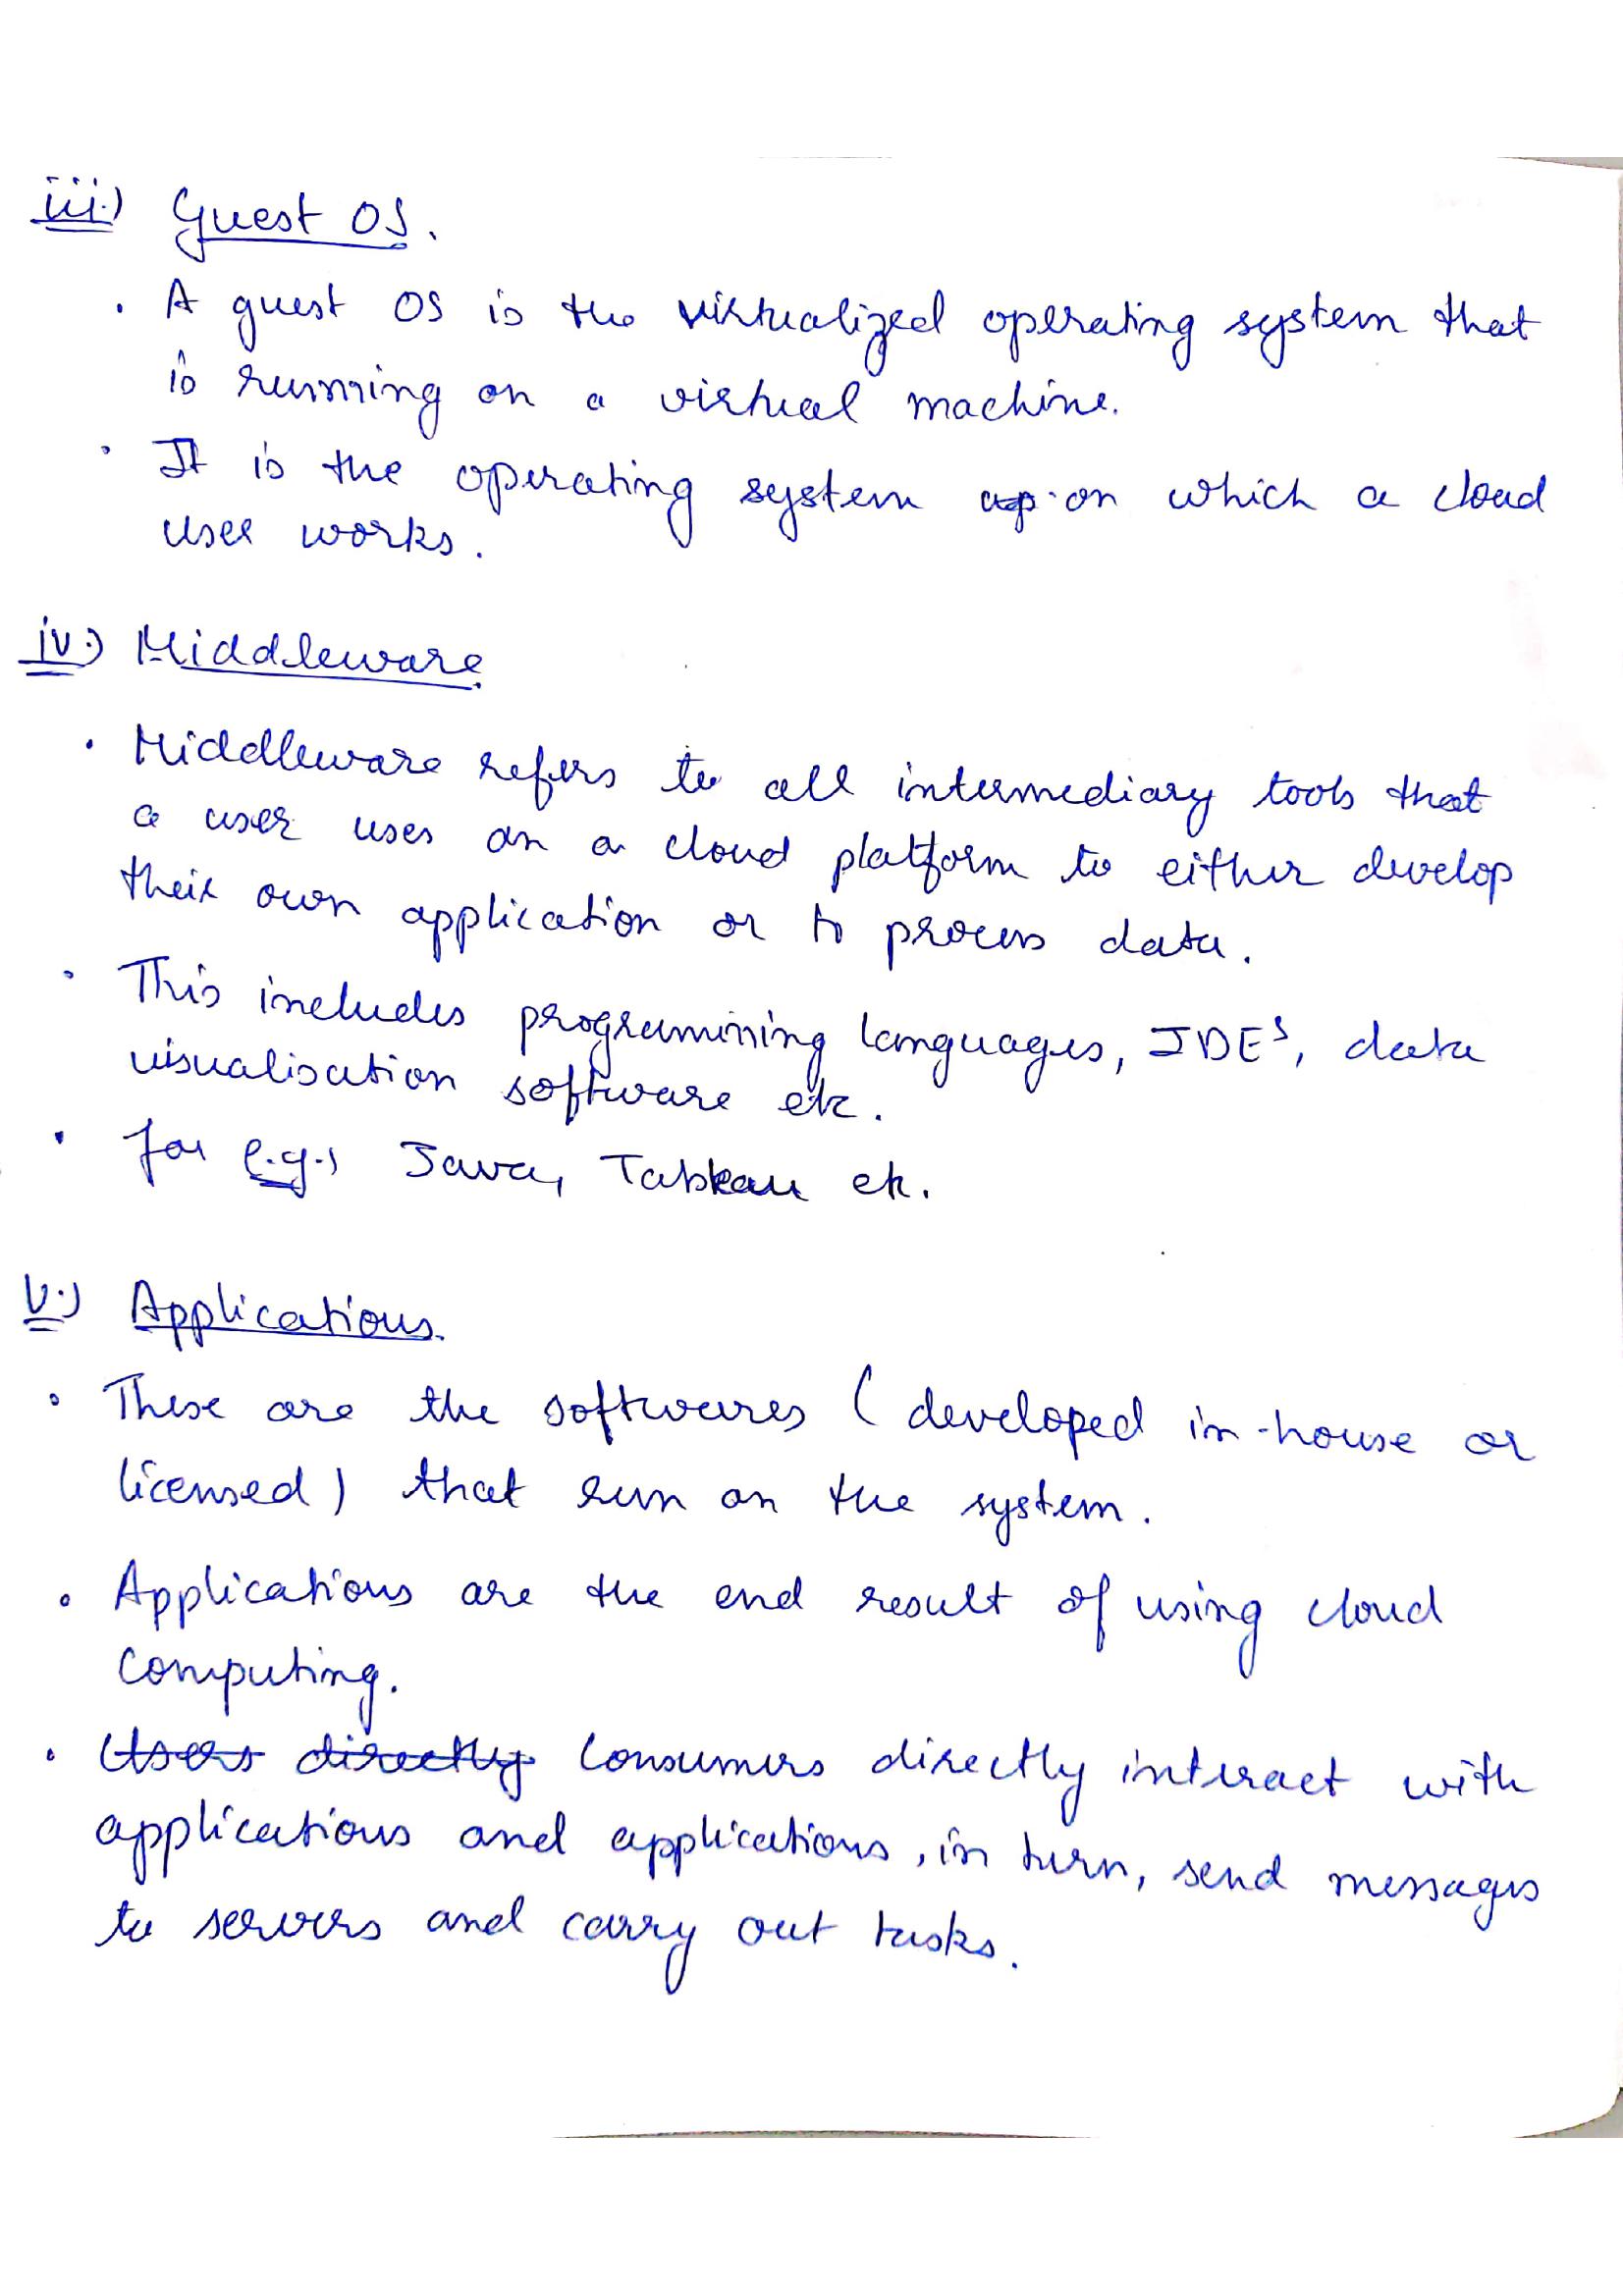 iii.) Guest OS.
• A guest OS is the virtualized operating system that
is running on a virtual machine.
• It is the operating system up on which a cloud
user works.
iv.) Middleware
• Middleware refers to all intermediary tools that
a user uses on a cloud platform to either develop
their own application or to process data.
• This includes programming languages, IDEs, data
visualisation software etc.
• for e.g., Java, Tableau etc.
v.) Applications.
• These are the softwares (developed in-house or
licensed) that run on the system.
• Applications are the end result of using cloud
computing.
• Users directly Consumers directly interact with
applications and applications, in turn, send messages
to servers and carry out tasks.